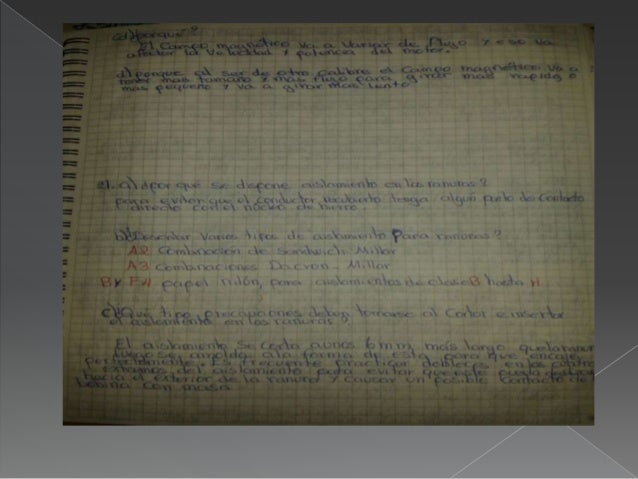 c) ¿porque?
El campo magnético va a variar de flujo y eso va
afectar la velocidad y potencia del motor.
d) porque al ser de otro calibre el campo magnético va a
tener mas tamaño y mas flujo para girar mas rapido o
mas pequeño y va a girar mas lento
21. a) ¿por que se dispone aislamiento en las ranuras?
para evitar que el conductor tenga algun punto de contacto
directo con el núcleo de hierro.
b) Describir varios tipos de aislamiento para ranuras?
A2 Combinación de Sandwich Millar
A3 Combinaciones Dacron - Millar
papel nilón, para aislamientos de clase B hasta H.
c) ¿Qué tipo precauciones deben tomarse al cortar e insertar
el aislamiento en las ranuras?
El aislamiento se corta a unos 6 mm, más largo que
luego se amolda a la forma de esta para que encaje
perfectamente. Es frecuente practicar dobleces en los
externos del aislamiento para evitar que este pueda
hacia el exterior de la ranura y causar un posible contacto de
bobina con masa.